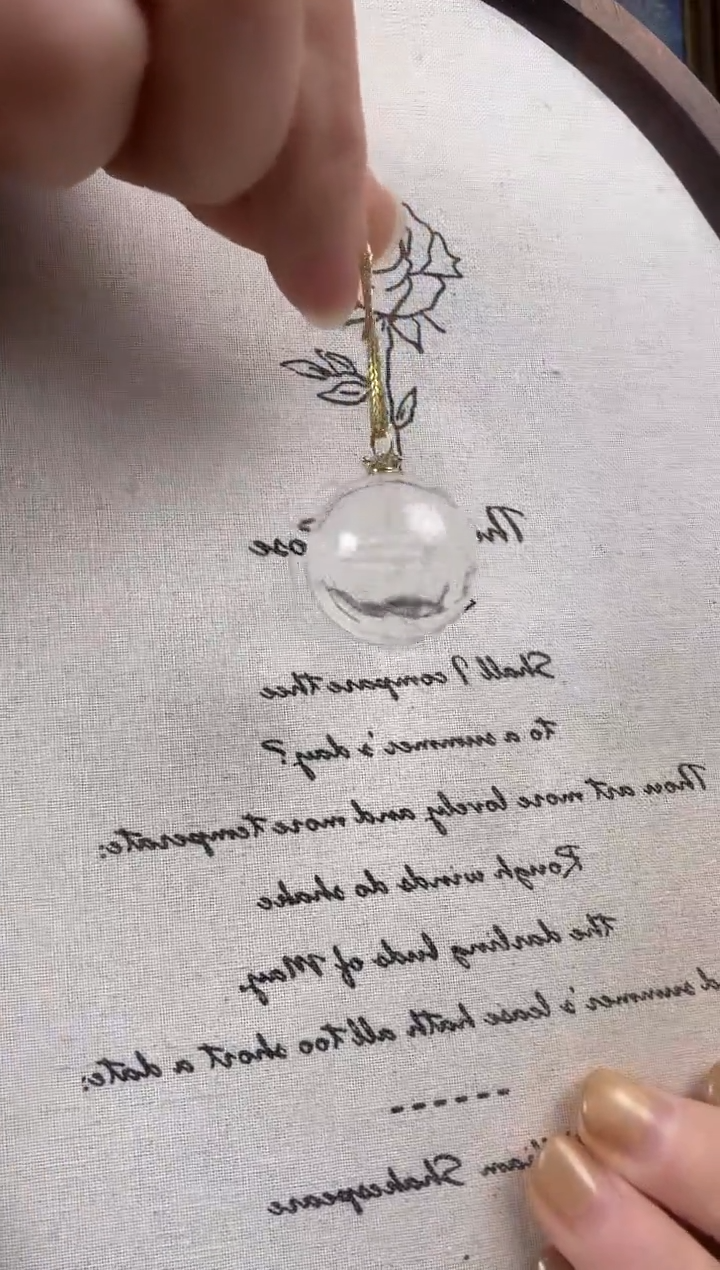 The ose
Shall I compare thee
to a summer's day?
Thou art more lovely and more temperate:
Rough winds do shake
the darling buds of May,
summer's lease hath all too short a date:
------
Shakespeare